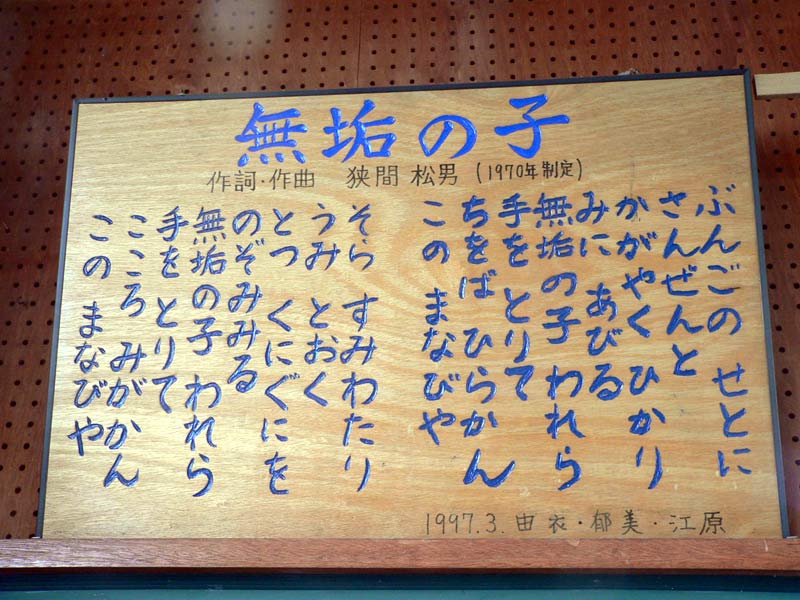 無垢の子
作詞・作曲 狭間 松男 (1970年制定)
ぶんごの せとに
さんぜんと
かがやく ひかり
みに あびる
無垢の子 われら
手を とりて
ちをば ひらかん
この まなびや
そら すみわたり
うみ とおく
とつ くにぐにを
のぞみみる
無垢の子 われら
手を とりて
こころ みがかん
この まなびや
1997.3.由衣・郁美・江原